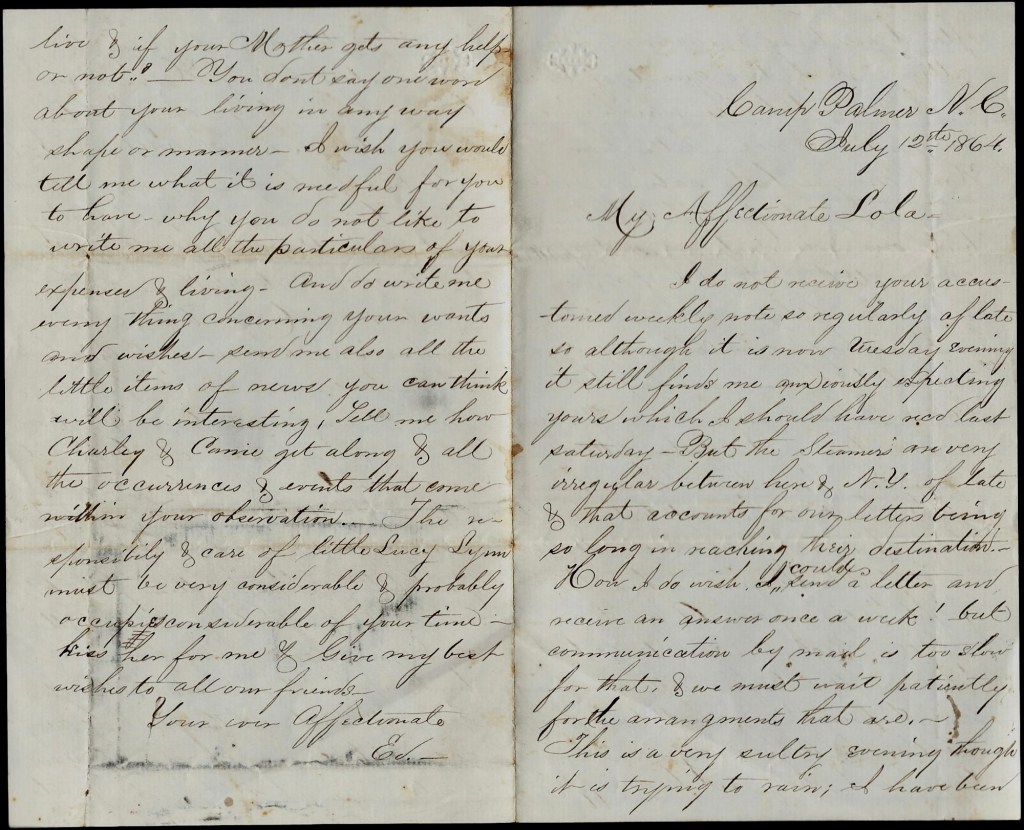 Camp Palmer N.C.
July 12th 1864.
My Affectionate Lola—
I do not receive your accus-
-tomed weekly note so regularly of late
so although it is now Tuesday evening
it still finds me anxiously expecting
yours which I should have recd last
saturday — But the Steamers are very
irregular between here & N.Y. of late
& that accounts for our letters being
so long in reaching their destination.—
How I do wish I could send a letter and
receive an answer once a week! but
communication by mail is too slow
for that, & we must wait patiently
for the arrangments that are.—
This is a very sultry evening though
it is trying to rain; I have been
live & if your Mother gets any help
or not."? — You dont say one word
about your living in any way
shape or manner — I wish you would
tell me what it is needful for you
to have — why you do not like to
write me all the particulars of your
expenses & living — And do write me
every thing concerning your wants
and wishes — send me also all the
little items of news you can think
will be interesting, Tell me how
Charley & Carrie get along & all
the occurrences & events that come
within your observation. — The re-
sponsibily & care of little Lucy Lynn
must be very considerable & probably
occupies considerable of your time —
kiss her for me & Give my best
wishes to all our friends —
Your ever Affectionate
Ed. —